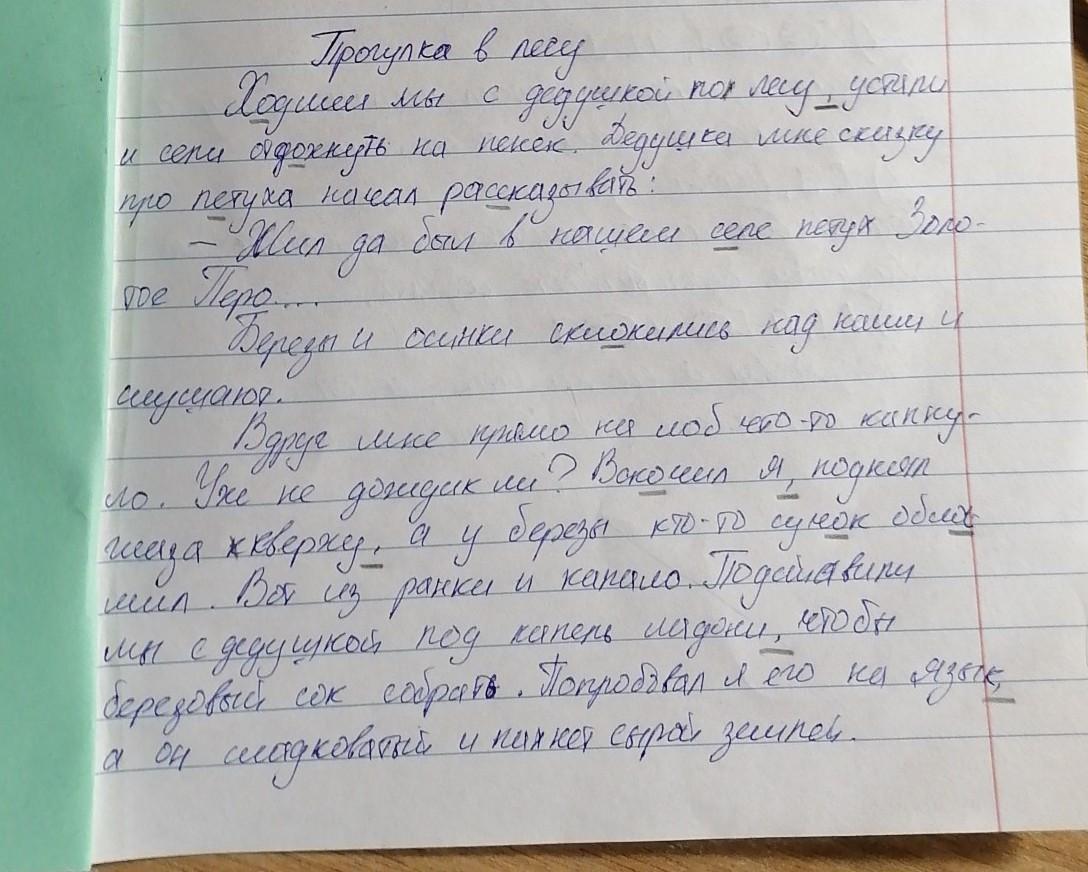 Прогулка в лесу
Ходили мы с дедушкой по лесу, устали
и сели отдохнуть на пенек. Дедушка мне сказку
про петуха начал рассказывать:
– Жил да был в нашем селе петух Золо-
тое Перо...
Березы и осинки склонились над нами и
слушают.
Вдруг мне прямо на лоб что-то капну-
ло. Уж не дождик ли? Вскочил я, поднял
глаза кверху, а у березы кто-то сучок обло-
мил. Вот из ранки и капало. Подставили
мы с дедушкой под капель ладони, чтобы
березовый сок собрать. Попробовал я его на язык,
а он сладковатый и пахнет сырой землей.